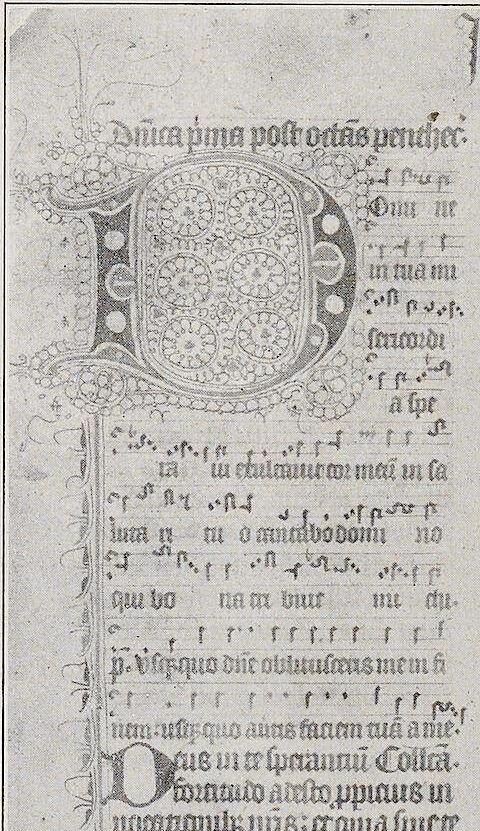 Dñica p̃ma post octãs penthec.
Domi ne
in tua mi
sericordi
a spe
ra ui exultauit cor meũ in sa
luta ri tu o cantabo domi no
qui bo na tri buit mi chi.
p̃. Vsq̃quo dñe obliuisceris me in fi
nem: usq̃quo aũtis faciem tuã a me.
Deus in te sperantiũ Collcã.
fortitudo adesto ꝓpicius in
uocationibꝫ nr̃is: et quia sine te